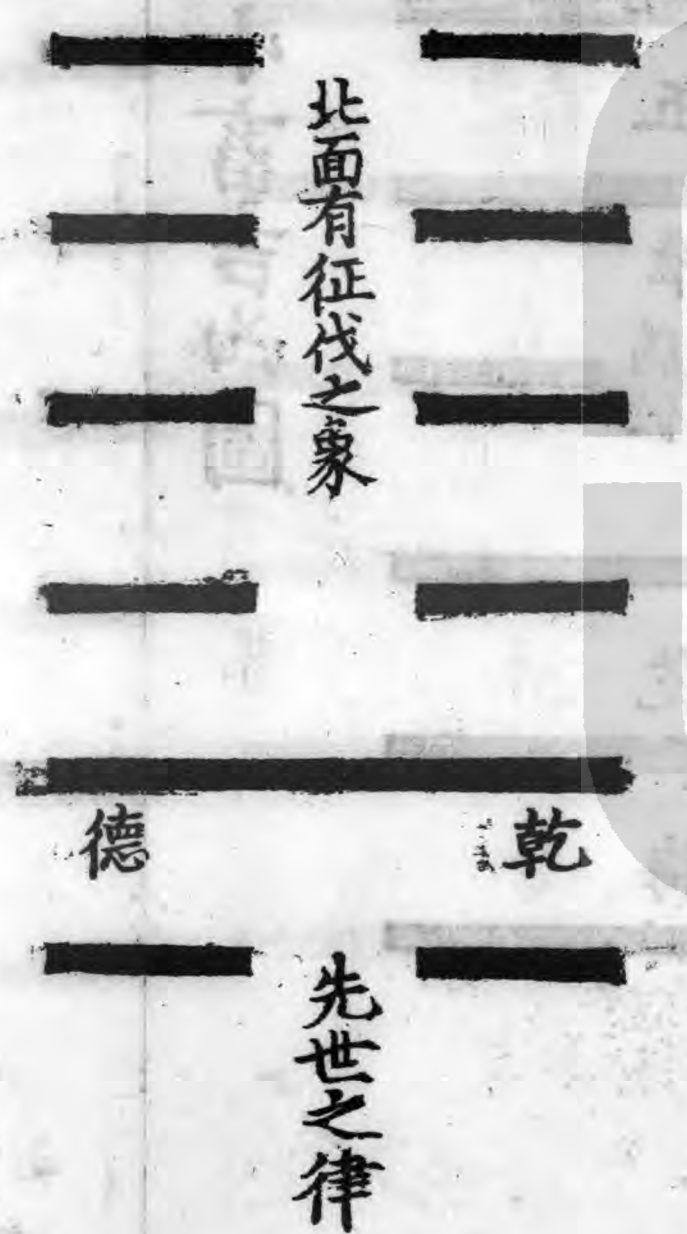 北面有征伐之象
乾德
先世之律